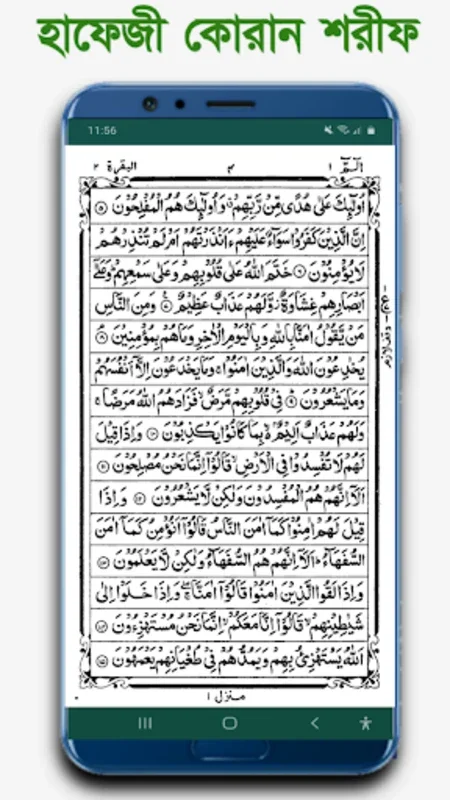 হাফেজী কোরান শরীফ
11:56
البقرة ٢
٣
الٓمّٓ ١
اُولٰٓئِكَ عَلٰى هُدًى مِّنْ رَّبِّهِمْ ۗ وَاُولٰٓئِكَ هُمُ الْمُفْلِحُوْنَ ۝٥
اِنَّ الَّذِيْنَ كَفَرُوْا سَوَآءٌ عَلَيْهِمْ ءَاَنْذَرْتَهُمْ اَمْ لَمْ تُنْذِرْهُمْ
لَا يُؤْمِنُوْنَ ۝٦ خَتَمَ اللّٰهُ عَلٰى قُلُوْبِهِمْ وَعَلٰى سَمْعِهِمْ ؕ وَعَلٰٓى
اَبْصَارِهِمْ غِشَاوَةٌ ؗ وَّلَهُمْ عَذَابٌ عَظِيْمٌ ۝٧ وَمِنَ النَّاسِ
مَنْ يَّقُوْلُ اٰمَنَّا بِاللّٰهِ وَبِالْيَوْمِ الْاٰخِرِ وَمَا هُمْ بِمُؤْمِنِيْنَ ۝٨
يُخٰدِعُوْنَ اللّٰهَ وَالَّذِيْنَ اٰمَنُوْا ۚ وَمَا يَخْدَعُوْنَ اِلَّآ اَنْفُسَهُمْ
وَمَا يَشْعُرُوْنَ ۝٩ فِيْ قُلُوْبِهِمْ مَّرَضٌ ۙ فَزَادَهُمُ اللّٰهُ مَرَضًا ۚ
وَلَهُمْ عَذَابٌ اَلِيْمٌ ۢ ۙ بِمَا كَانُوْا يَكْذِبُوْنَ ۝١٠ وَاِذَا قِيْلَ
لَهُمْ لَا تُفْسِدُوْا فِي الْاَرْضِ ۙ قَالُوْٓا اِنَّمَا نَحْنُ مُصْلِحُوْنَ ۝١١
اَلَآ اِنَّهُمْ هُمُ الْمُفْسِدُوْنَ وَلٰكِنْ لَّا يَشْعُرُوْنَ ۝١٢ وَاِذَا
قِيْلَ لَهُمْ اٰمِنُوْا كَمَآ اٰمَنَ النَّاسُ قَالُوْٓا اَنُؤْمِنُ كَمَآ اٰمَنَ
السُّفَهَآءُ ؕ اَلَآ اِنَّهُمْ هُمُ السُّفَهَآءُ وَلٰكِنْ لَّا يَعْلَمُوْنَ ۝١٣
وَاِذَا لَقُوا الَّذِيْنَ اٰمَنُوْا قَالُوْٓا اٰمَنَّا ۖۚ وَاِذَا خَلَوْا اِلٰى
شَيٰطِيْنِهِمْ ۙ قَالُوْٓا اِنَّا مَعَكُمْ ۙ اِنَّمَا نَحْنُ مُسْتَهْزِءُوْنَ ۝١٤
اَللّٰهُ يَسْتَهْزِئُ بِهِمْ وَيَمُدُّهُمْ فِيْ طُغْيَانِهِمْ يَعْمَهُوْنَ ۝١٥
منزل ١